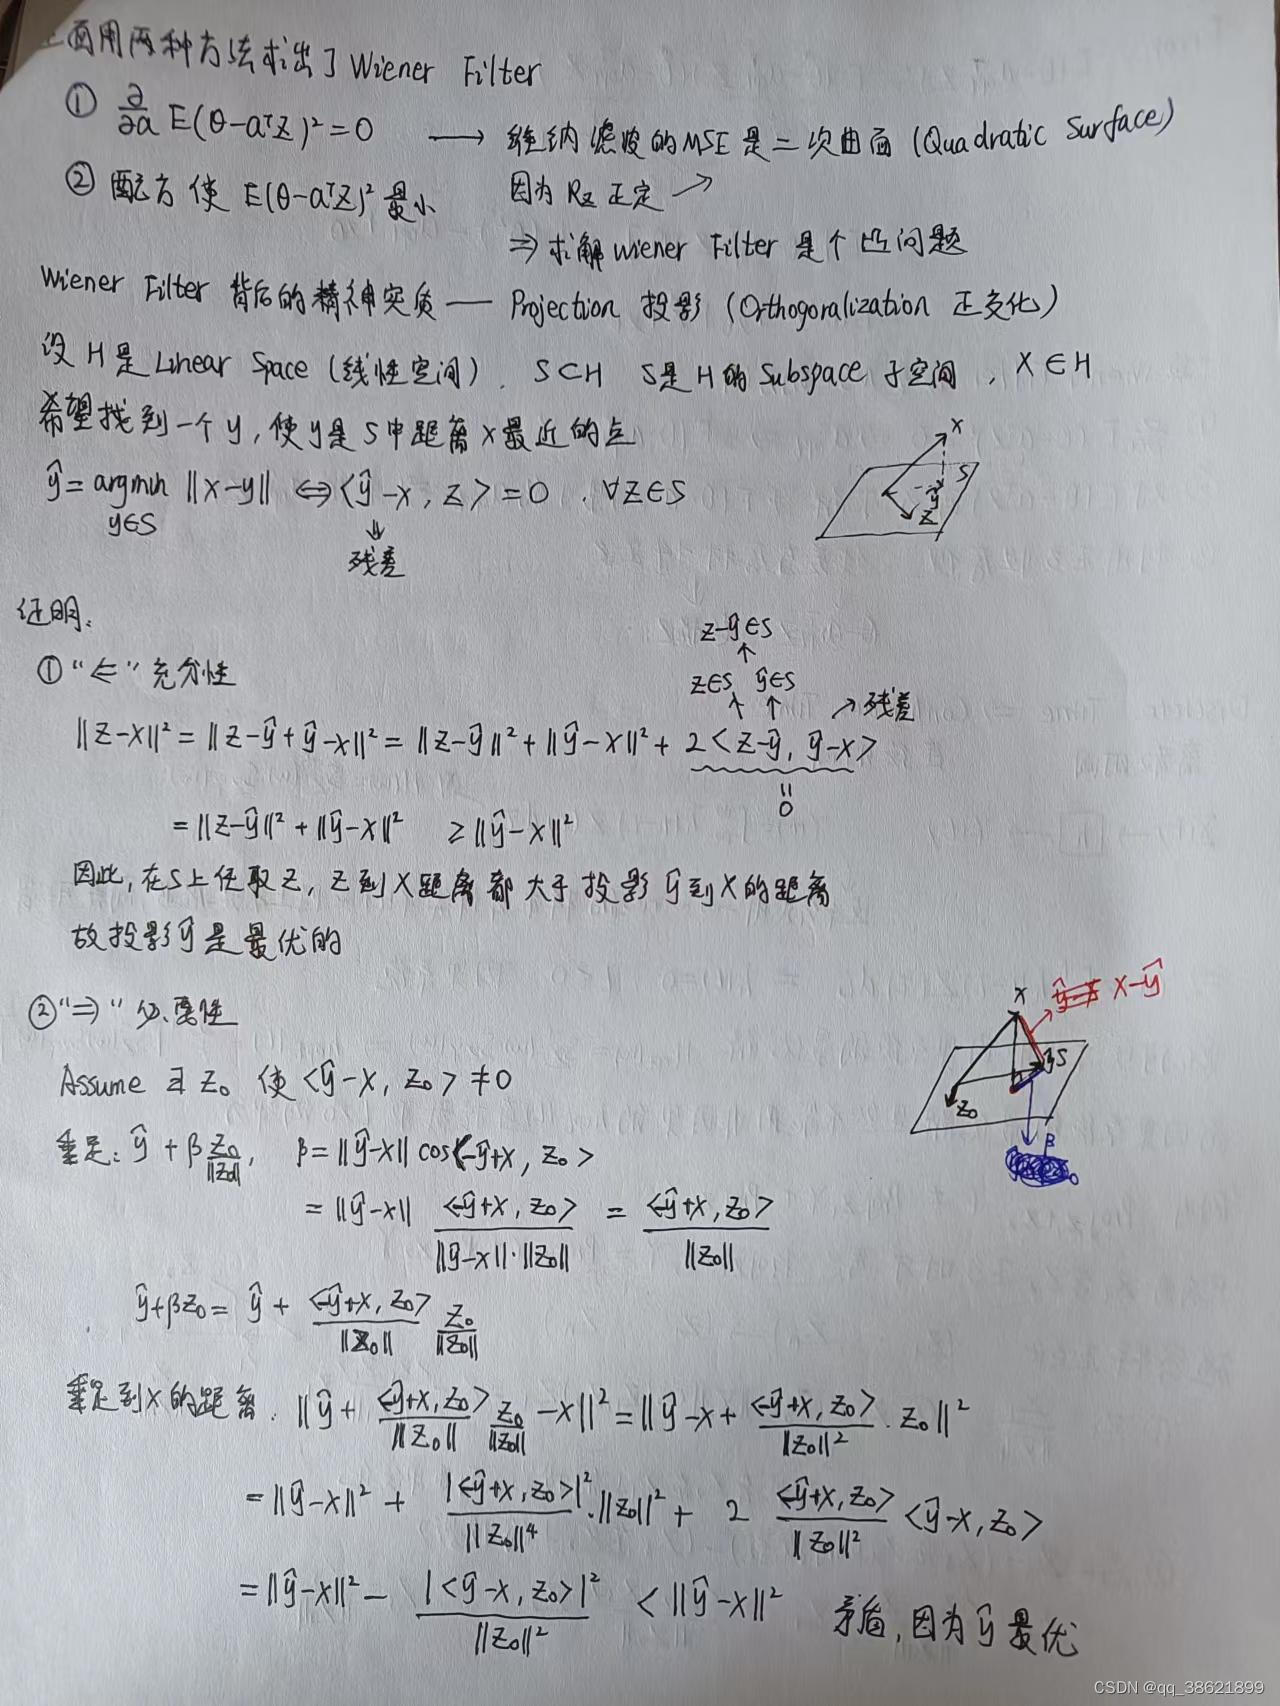 面用两种方法求出了 Wiener Filter
① ∂/∂a E(θ-aᵀZ)²=0 → 维纳滤波的MSE是二次曲面 (Quadratic Surface)
② 配方使 E(θ-aᵀZ)² 最小 因为 R_Z 正定 ↗
⇒ 求解wiener Filter 是个凸问题
Wiener Filter 背后的精神实质 — Projection 投影 (Orthogoralization 正交化)
设 H 是 Linear Space (线性空间). S⊂H S是H的Subspace 子空间, X∈H
希望找到一个y, 使y是S中距离x最近的点
ŷ = argmin ‖X-y‖ ⇔ ⟨ŷ-x, Z⟩=0, ∀Z∈S
y∈S
⇓
残差
X
S
ŷ
Z
证明:
① "⇐" 充分性
z-ŷ∈S
↑
z∈S ŷ∈S
↗ 残差
‖Z-X‖² = ‖Z-ŷ+ŷ-x‖² = ‖Z-ŷ‖²+‖ŷ-X‖²+2⟨Z-ŷ, ŷ-x⟩
=
0
=‖Z-ŷ‖²+‖ŷ-X‖² ≥‖ŷ-X‖²
因此, 在S上任取Z, Z到X距离都大于投影ŷ到X的距离
故投影ŷ是最优的
② "⇒" 必要性
X
X-ŷ
S
Z₀
β
Assume ∃ Z₀ 使⟨ŷ-X, Z₀⟩≠0
垂足: ŷ + β Z₀/‖Z₀‖, β=‖ŷ-x‖ cos⟨-ŷ+x, Z₀⟩
= ‖ŷ-x‖ ⟨-ŷ+x, Z₀⟩/(‖ŷ-x‖·‖Z₀‖) = ⟨-ŷ+x, Z₀⟩/‖Z₀‖
ŷ+βZ₀ = ŷ + ⟨-ŷ+x, Z₀⟩/‖Z₀‖ Z₀/‖Z₀‖
垂足到X的距离. ‖ŷ + ⟨-ŷ+x, Z₀⟩/‖Z₀‖ Z₀/‖Z₀‖ -x‖² = ‖ŷ-x+ ⟨-ŷ+x, Z₀⟩/‖Z₀‖² · Z₀‖²
=‖ŷ-x‖² + |⟨-ŷ+x, Z₀⟩|²/‖Z₀‖⁴ ·‖Z₀‖² + 2 ⟨-ŷ+x, Z₀⟩/‖Z₀‖² ⟨ŷ-x, Z₀⟩
=‖ŷ-x‖² - |⟨ŷ-x, Z₀⟩|²/‖Z₀‖² < ‖ŷ-x‖² 矛盾, 因为ŷ最优
CSDN @qq_38621899